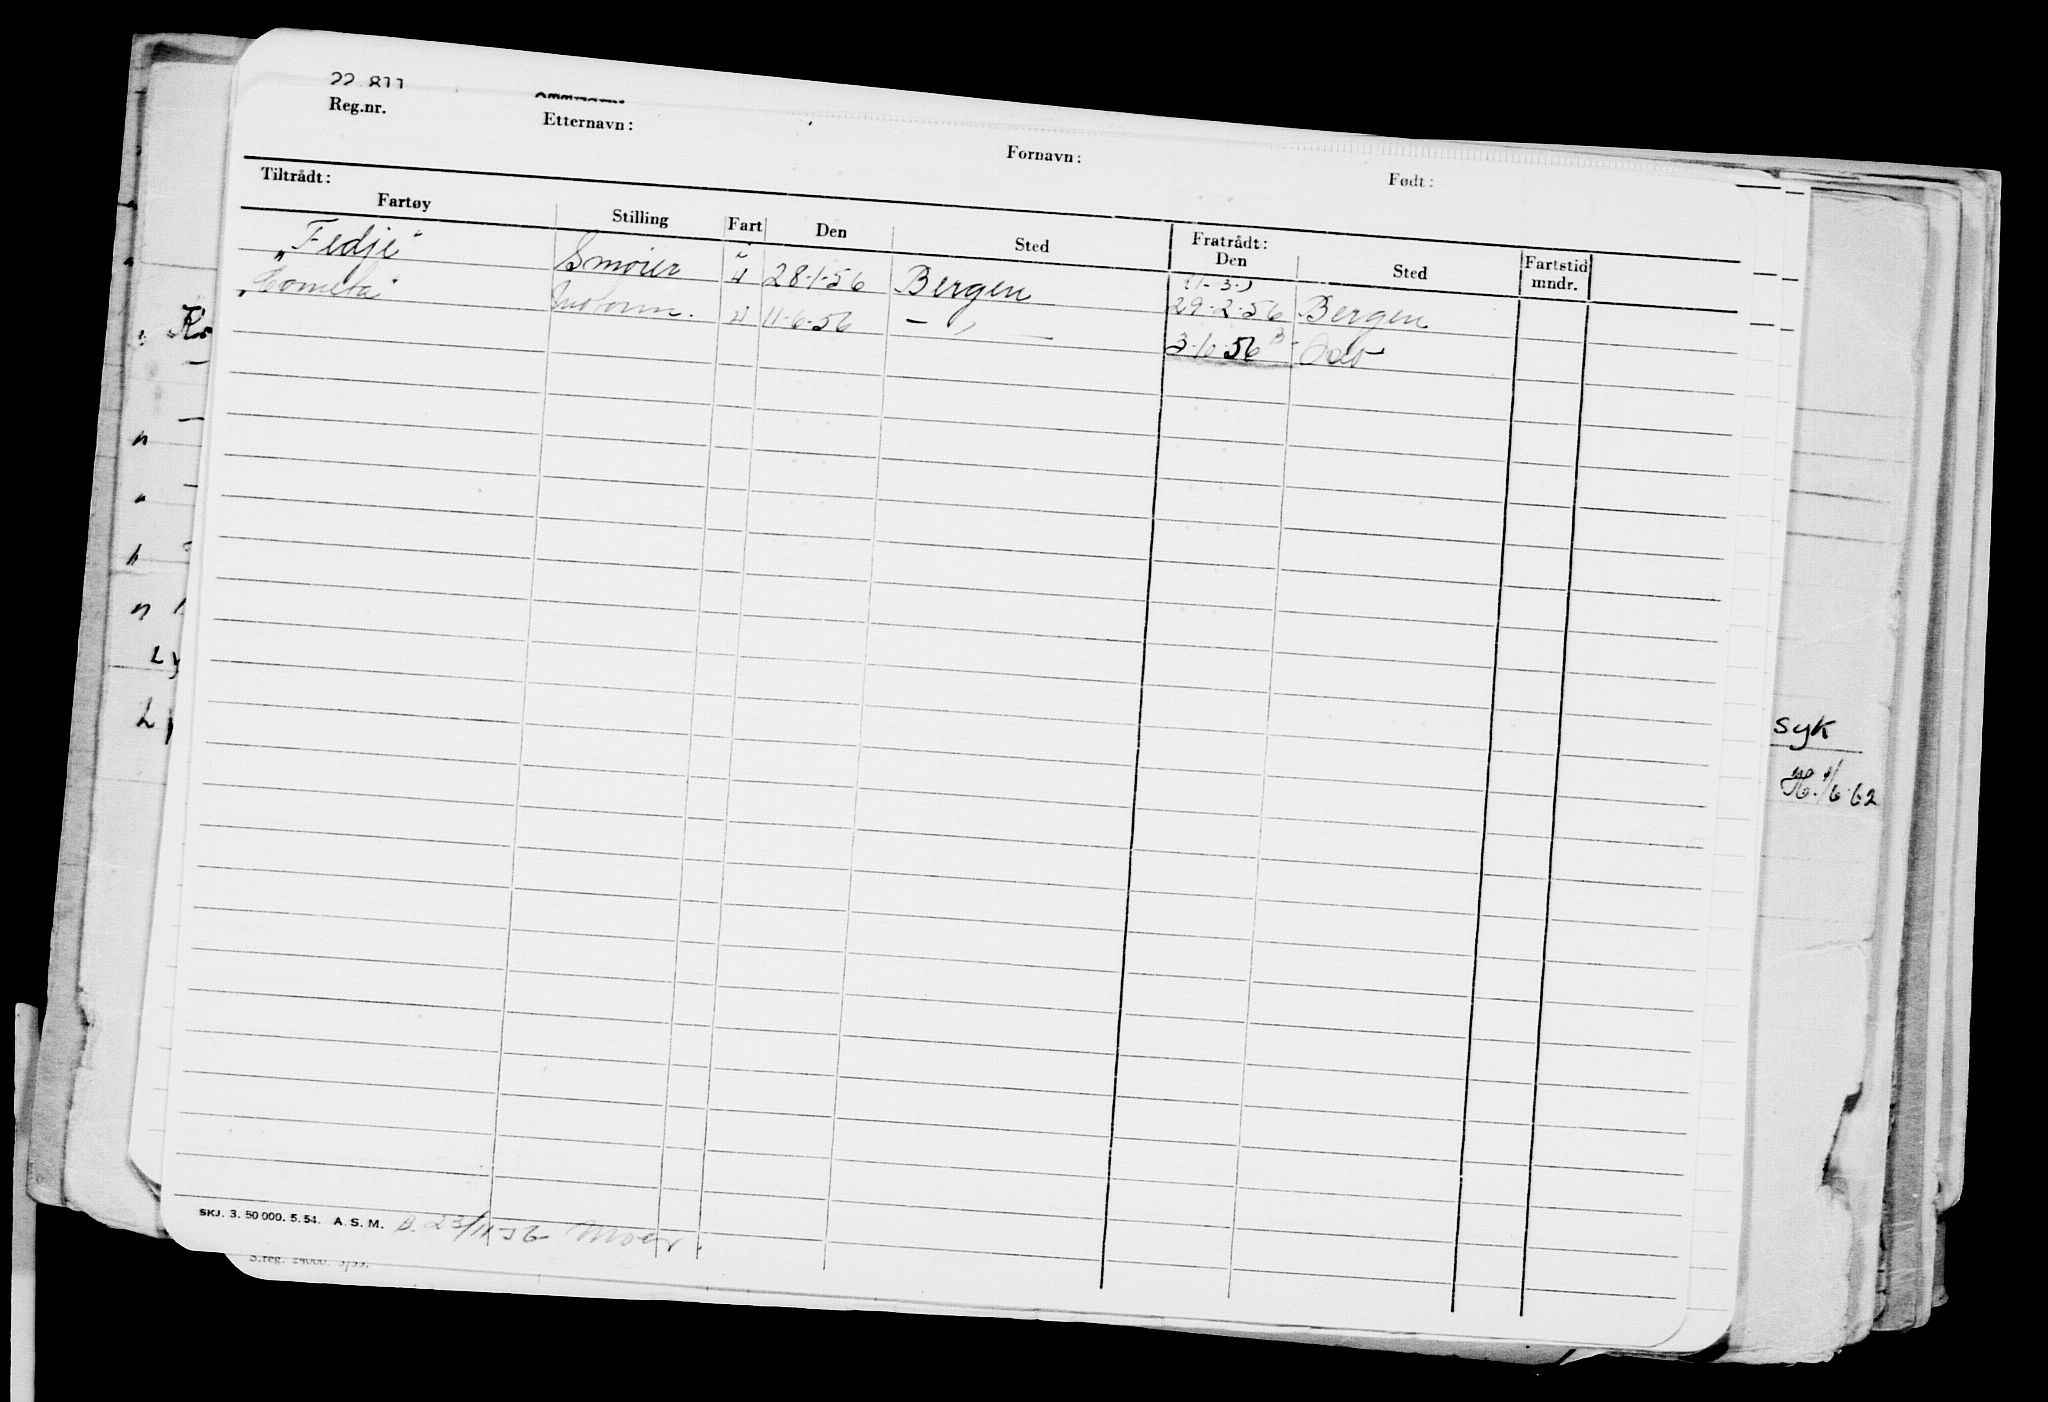 22 811
Reg.nr. Etternavn: Fornavn: Født:
Tiltrådt: Fratrådt:
Fartøy Stilling Fart Den Sted Den Sted Fartstid mndr.
„Fedje“ Smører u 28-1-56 Bergen (1-3-) 29-2-56 Bergen
„Cometa“ Motorm. u 11-6-56 — „ — 3-10-56 Oslo
syk
H. 1/6-62
SKJ. 3. 50 000. 5. 54. A. S. M. B. 23/11-56
S.reg. 24000.